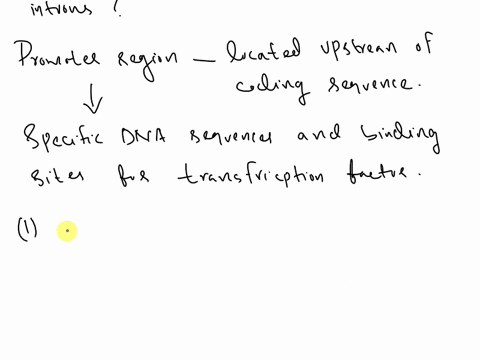 introns ?
Promoter region — located upstream of
coding sequence.
↓
Specific DNA sequences and binding
sites for transfription factor.
(1)